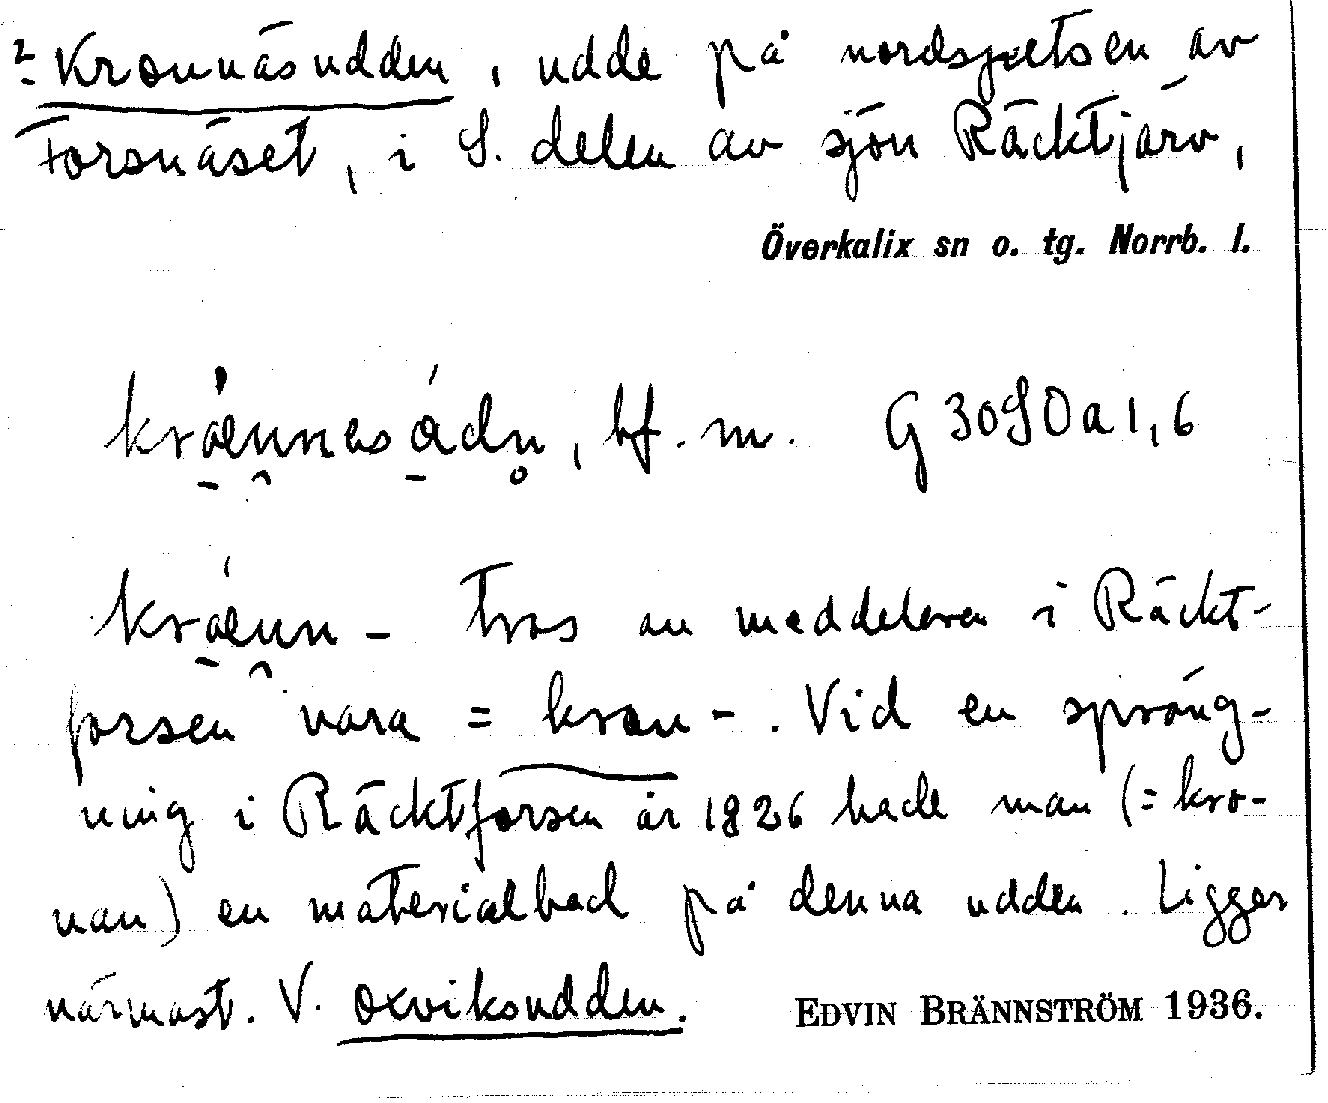 ? Kronnäsudden, udde på nordspetsen av
Forsnäset, i S. delen av sjön Räcktjärv,
Överkalix sn o. tg. Norrb. l.
bf. m. G 30 S O a 1, 6
– tros av meddelaren i Räckt-
forsen vara = kron-. Vid en spräng-
ning i Räcktforsen år 1826 hade man (= kro-
nan) en materialbod på denna udden. Ligger
närmast. V. Oxviksudden.
EDVIN BRÄNNSTRÖM 1936.